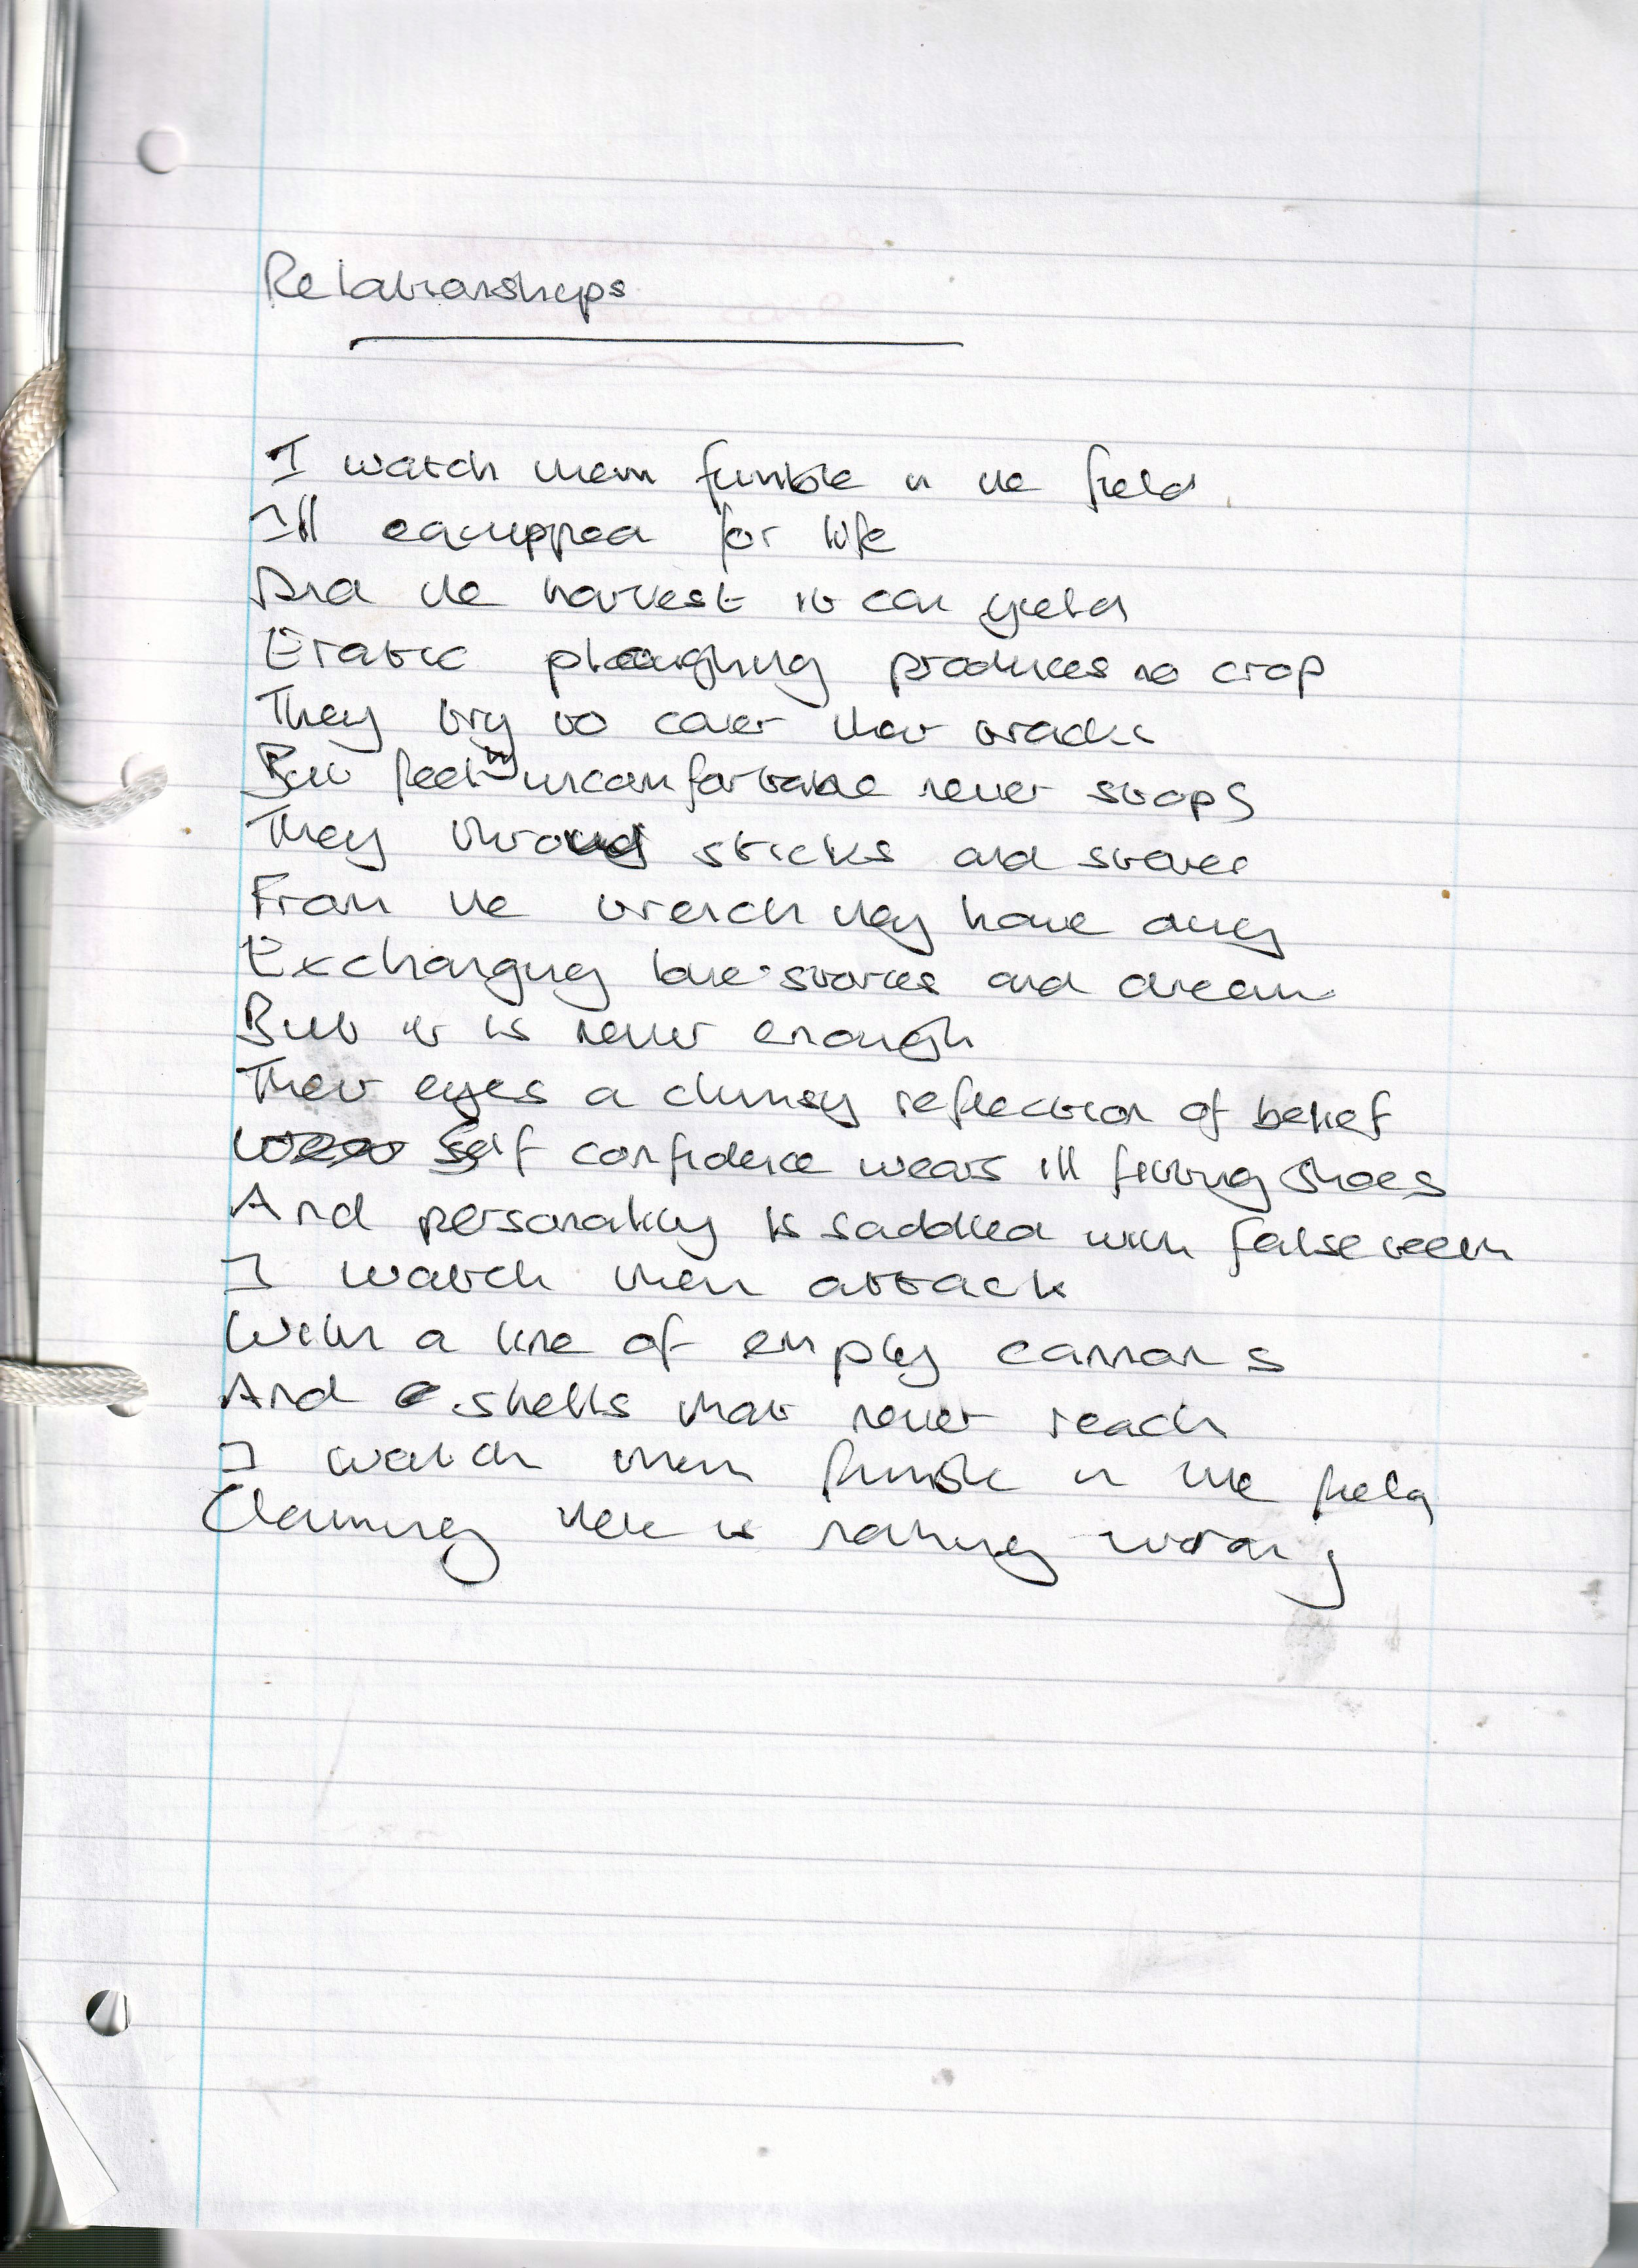 Relationships
I watch them fumble in the field
Ill equipped for life
And the harvest it can yield
Eratic ploughing produces no crop
They try to cover their tracks
But feeling uncomfortable never stops
They throw sticks and stones
From the trench they have dug
Exchanging love stories and dreams
But it is never enough
Their eyes a clumsy reflection of belief
Self confidence wears ill fitting shoes
And personality is saddled with false teeth
I watch them attack
With a line of empty cannons
And shells that never reach
I watch them fumble in the field
Claiming there is nothing wrong